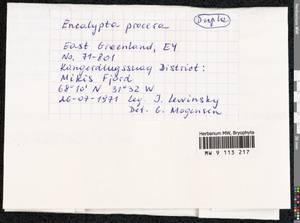 Encalypta procera
Dupla
East Greenland, E4
No. 71-801
Kangerdlugssuaq District:
Mikis Fjord
68°10' N 31°32 W
26-07-1971 leg. J. Lewinsky
Det. G. Mogensen
Herbarium MW, Bryophyta
MW 9 113 217